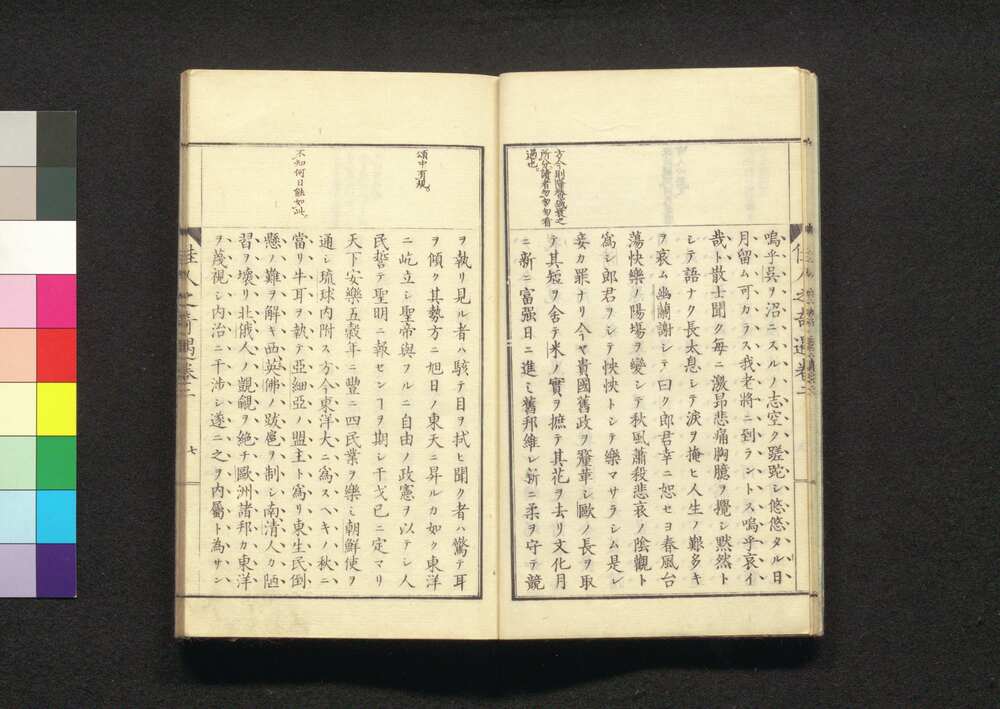 方今則隆替盛衰之
所分讀者勿匆匆看
過也。
佳人之奇遇卷二
嗚乎吳ヲ沼ニスルノ志空ク蹉跎シ悠悠タル日
月留ム可カラス我老將ニ到ラントス嗚乎哀イ
哉ト散士聞ク毎ニ激昂悲痛胸臆ヲ攪シ默然ト
シテ語ナク長太息シテ淚ヲ掩ヒ人生ノ艱多キ
ヲ哀ム幽蘭謝シテ曰ク郎君幸ニ恕セヨ春風台
蕩快樂ノ陽場ヲ變シテ秋風蕭殺悲哀ノ陰觀ト
爲シ郎君ヲシテ怏怏トシテ樂マサラシム是レ
妾カ罪ナリ今ヤ貴國舊政ヲ釐革シ歐ノ長ヲ取
テ其短ヲ舍テ米ノ實ヲ摭テ其花ヲ去リ文化月
ニ新ニ富强日ニ進ミ舊邦維レ新ニ柔ヲ守テ競
頌中有規。
不知何日能如此。
ヲ執リ見ル者ハ駭テ目ヲ拭ヒ聞ク者ハ驚テ耳
ヲ傾ク其勢方ニ旭日ノ東天ニ昇ルカ如ク東洋
ニ屹立シ聖帝與フルニ自由ノ政憲ヲ以テシ人
民誓テ聖明ニ報センヿヲ期シ干戈已ニ定マリ
天下安樂五穀年ニ豐ニ四民業ヲ樂ミ朝鮮使ヲ
通シ琉球內附ス方今東洋大ニ爲スヘキノ秋ニ
當リ牛耳ヲ執テ亞細亞ノ盟主ト爲リ東生民倒
懸ノ難ヲ解キ西英佛ノ跋扈ヲ制シ南清人カ陋
習ヲ壞リ北俄人ノ覬覦ヲ絕チ歐洲諸邦カ東洋
ヲ蔑視シ內治ニ干涉シ遂ニ之ヲ內屬ト為サン
佳人之奇遇卷二
七